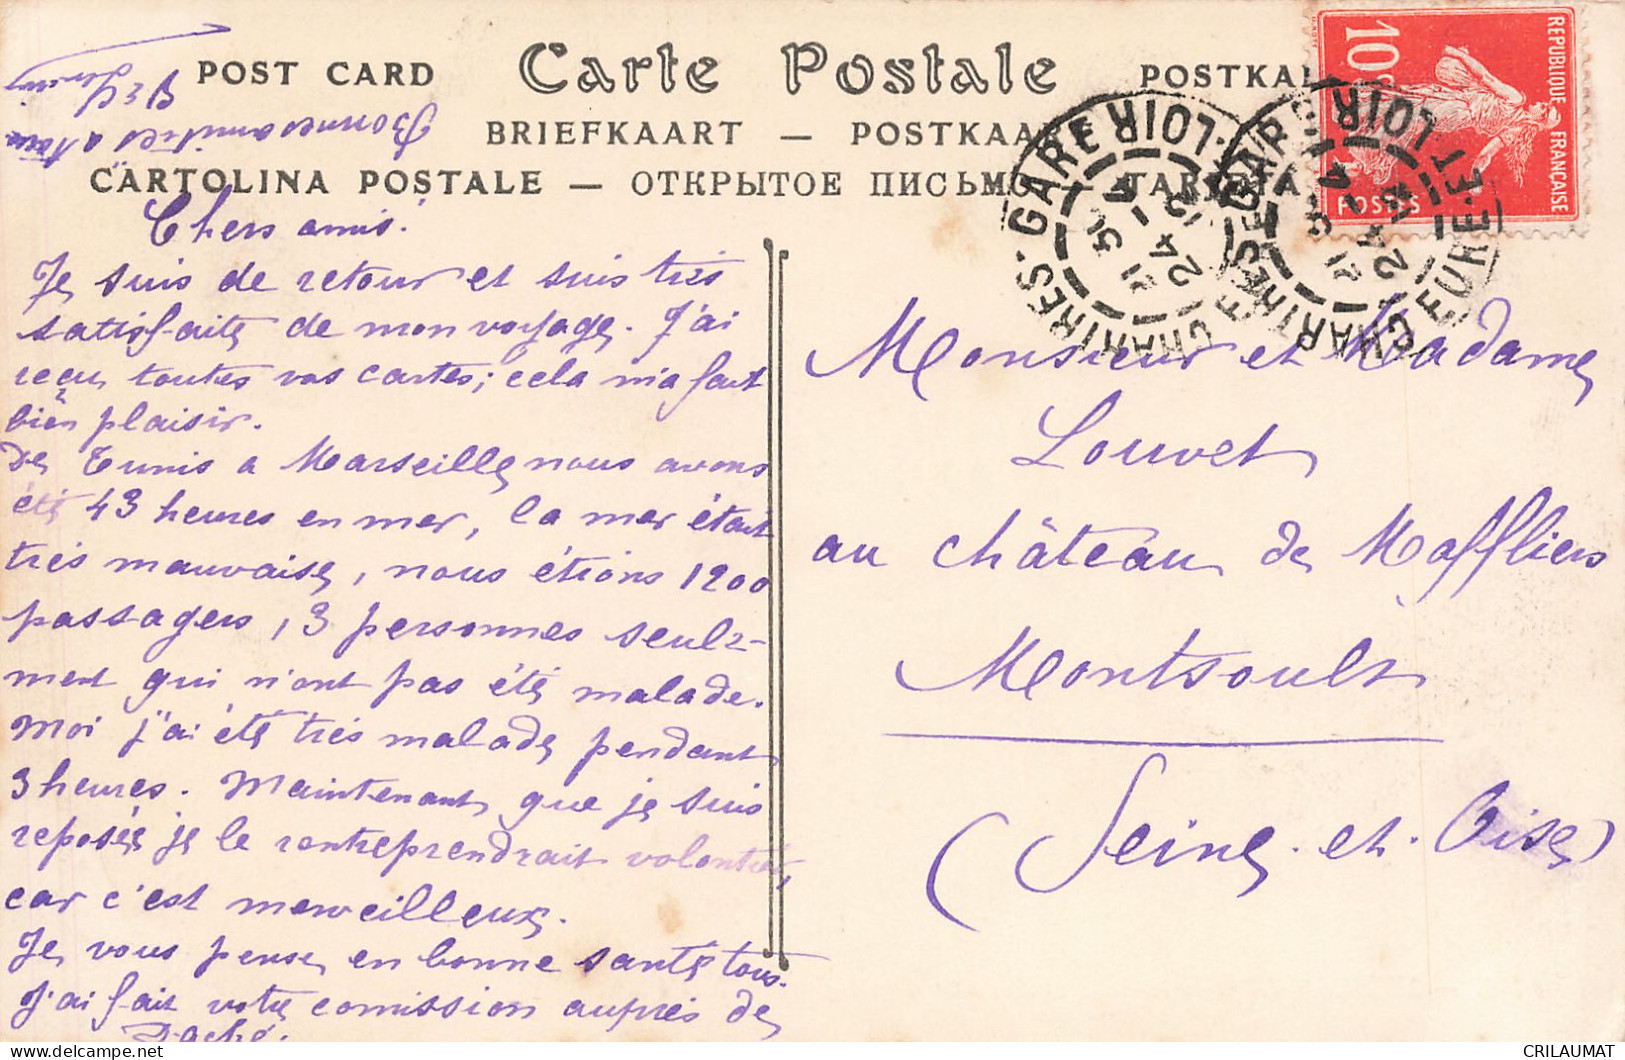 POST CARD Carte Postale POSTKAR
BRIEFKAART — POSTKAART
CARTOLINA POSTALE — ОТКРЫТОЕ ПИСЬМО
REPUBLIQUE FRANÇAISE
10 c
POSTES
CHARTRES-GARE
EURE-ET-LOIR
24
CHARTRES-GARE
EURE-ET-LOIR
24
Bonnes amitiés a tous
Chers amis.
Je suis de retour et suis très
satisfaite de mon voyage. J'ai
reçu toutes vos cartes; cela m'a fait
bien plaisir.
De Tunis a Marseille nous avons
été 43 heures en mer, la mer était
très mauvaise, nous étions 1200
passagers, 3 personnes seule-
ment qui n'ont pas été malade.
Moi j'ai été très malade pendant
3 heures. Maintenant que je suis
reposée je le rentreprendrait volontier,
car c'est merveilleux.
Je vous pense en bonne santé tous.
J'ai fait votre comission auprès de
Monsieur et Madame
Louvet
au château de Maffliers
Montsoult
(Seine-et-Oise)
CRILAUMAT